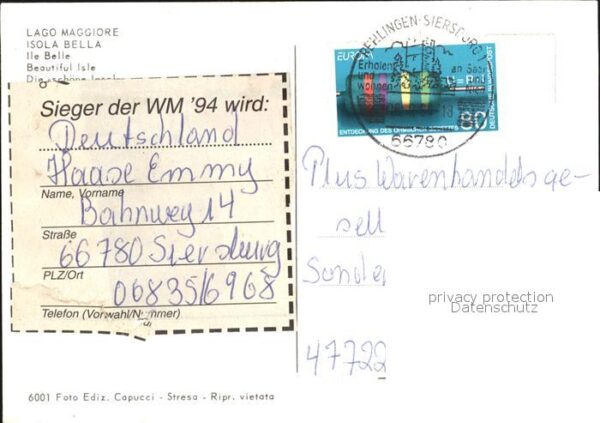 LAGO MAGGIORE
ISOLA BELLA
Ile Belle
Beautiful Isle
Die schöne Insel
Sieger der WM '94 wird:
Deutschland
Haase Emmy
Name, Vorname
Bahnweg 14
Straße
66780 Siersburg
PLZ/Ort
06835/6968
Telefon (Vorwahl/Nummer)
REHLINGEN-SIERSBURG
Erholen
und
wohnen
an Saar
66780
EUROPA
80
DEUTSCHE BUNDESPOST
ENTDECKUNG DES OHMSCHEN GESETZES
Plus Warenhandelsge-
sell
Sonder
47722
privacy protection
Datenschutz
6001 Foto Ediz. Capucci - Stresa - Ripr. vietata